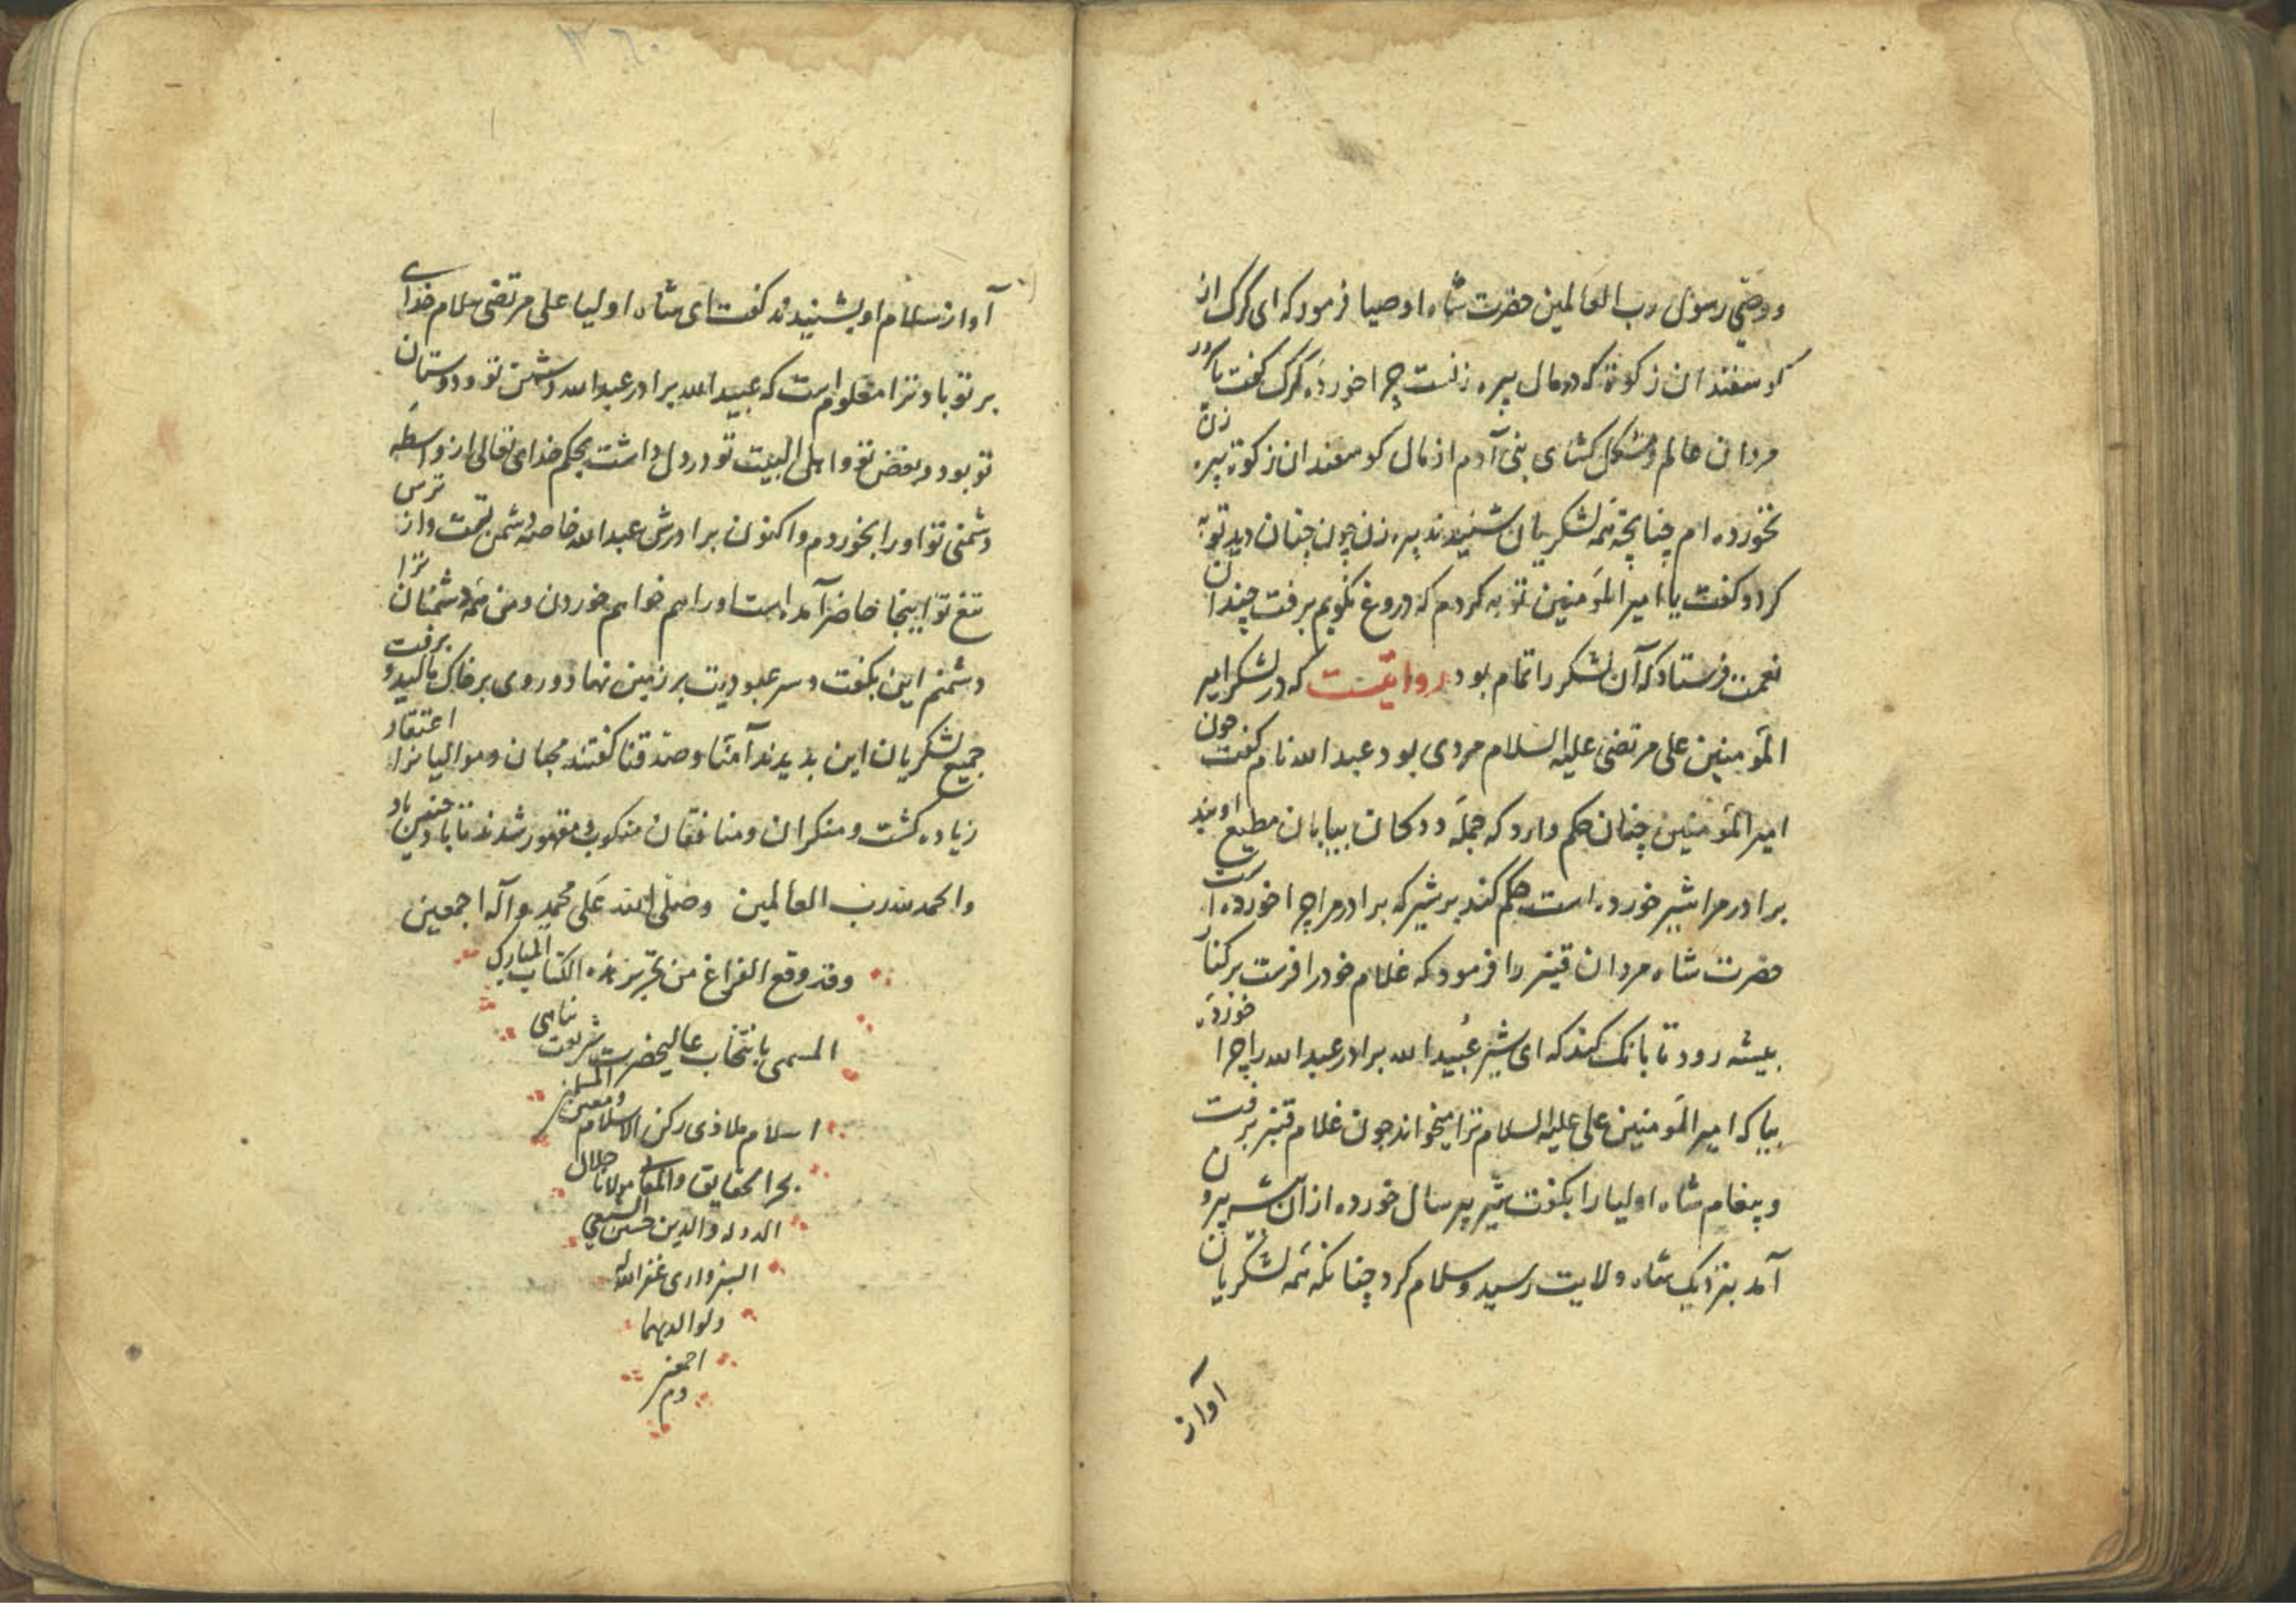 ووصی رسول رب العالمین حضرت شاه اوصیا فرمود که ای گرگ از
گوسفندان زکوة که در مال پیره زنست چرا خورده گرگ گفت یا
مردان عالم و مشکل کشای بنی آدم از مال گوسفندان زکوة پیره زن
نخورده ام چنانچه همه لشکریان شنیدند پیره زن چون چنان دید توبه
کرد و گفت یا امیر المؤمنین توبه کردم که دروغ نگویم برفت چندان
نعمت فرستاد که آن لشکر را تمام بود روایتست که در لشکر امیر
المؤمنین علی مرتضی علیه السلام مردی بود عبد الله نام گفت چون
امیر المؤمنین چنان حکم دارد که جمله ددکان بیابان مطیع اویند
برادر مرا شیر خورده است حکم کند بر شیر که برادر مرا چرا خورده است
حضرت شاه مردان قنبر را فرمود که غلام خود را فرست بر کنار
بیشه رود تا بانک کند که ای شیر عبید الله برادر عبد الله را چرا خوردۀ
بیا که امیر المؤمنین علی علیه السلام ترا میخواند چون غلام قنبر برفت
و پیغام شاه اولیا را بگفت شیر پیر سال خورده از آن بیشه بیرون
آمد بنزدیک شاه ولایت رسید و سلام کرد چنانکه همه لشکریان
آواز
آواز سلام او بشنیدند گفت ای شاه اولیا علی مرتضی سلام خدای
بر تو باد ترا معلوم است که عبید الله برادر عبد الله دشمن تو و دوستان
تو بود و بغض تو و اهل البیت تو در دل داشت بحکم خدای تعالی از واسطه
دشمنی تو او را بخوردم و اکنون برادرش عبد الله خاصه دشمن تست و از ترس
تیغ تو اینجا حاضر آمده است او را هم خواهم خوردن و من همه دشمنان ترا
دشمنم این بگفت و سر عبودیت بر زمین نهاد و روی بر خاک مالید و برفت
جمیع لشکریان این بدیدند آمنا و صدقنا گفتند محبان و موالیانرا اعتقاد
زیاده گشت و منکران و منافقان منکوب و مقهور شدند تا باد چنین باد
والحمد لله رب العالمین وصلی الله علی محمد وآله اجمعین
وقد وقع الفراغ من تحریر هذه الکتاب المبارک
المسمی بانتخاب عالیحضرت شریعت پناهی
اسلام ملاذی رکن الاسلام ومعین المسلمین
بحر الحقایق والمعانی مولانا جلال
الدوله والدین حسین الشیعی
السبزواری غفر الله له
ولوالدیهما
اجمعین